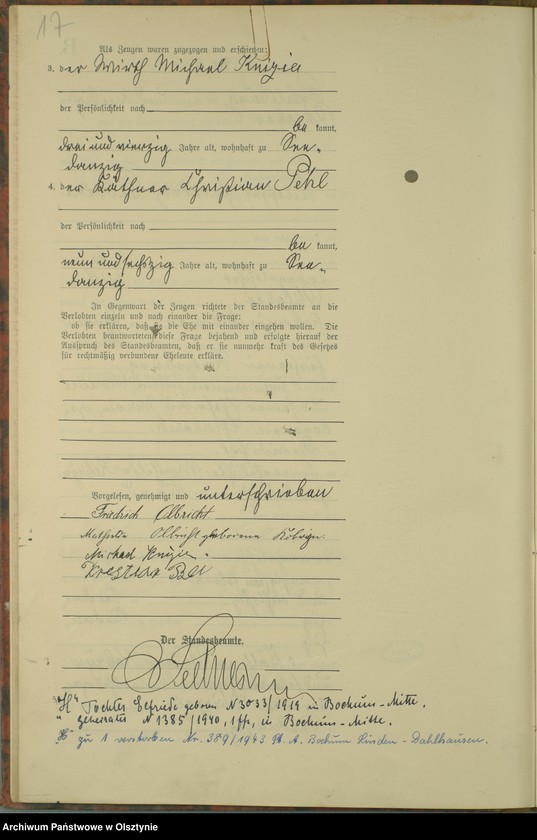 17
Als Zeugen waren zugezogen und erschienen:
3. der Wirth Michael
der Persönlichkeit nach
be kannt,
drei und vierzig Jahre alt, wohnhaft zu See-
danzig
4. der Käthner Christian Pehl
der Persönlichkeit nach
be kannt,
neun und sechszig Jahre alt, wohnhaft zu See-
danzig
In Gegenwart der Zeugen richtete der Standesbeamte an die
Verlobten einzeln und nach einander die Frage:
ob sie erklären, daß sie die Ehe mit einander eingehen wollen. Die
Verlobten beantworteten diese Frage bejahend und erfolgte hierauf der
Ausspruch des Standesbeamten, daß er sie nunmehr kraft des Gesetzes
für rechtmäßig verbundene Eheleute erkläre.
Vorgelesen, genehmigt und unterschrieben
Friedrich Olbricht
Mathilde Olbricht geborene
Michael
Der Standesbeamte.
"H" Tochter Elfriede geboren N 3033/1919 in Bochum-Mitte.
" geheiratet N 1385/1940, in Bochum-Mitte.
zu 1 verstorben Nr. 389/1943 St. A. Bochum Linden-Dahlhausen.
Archiwum Państwowe w Olsztynie